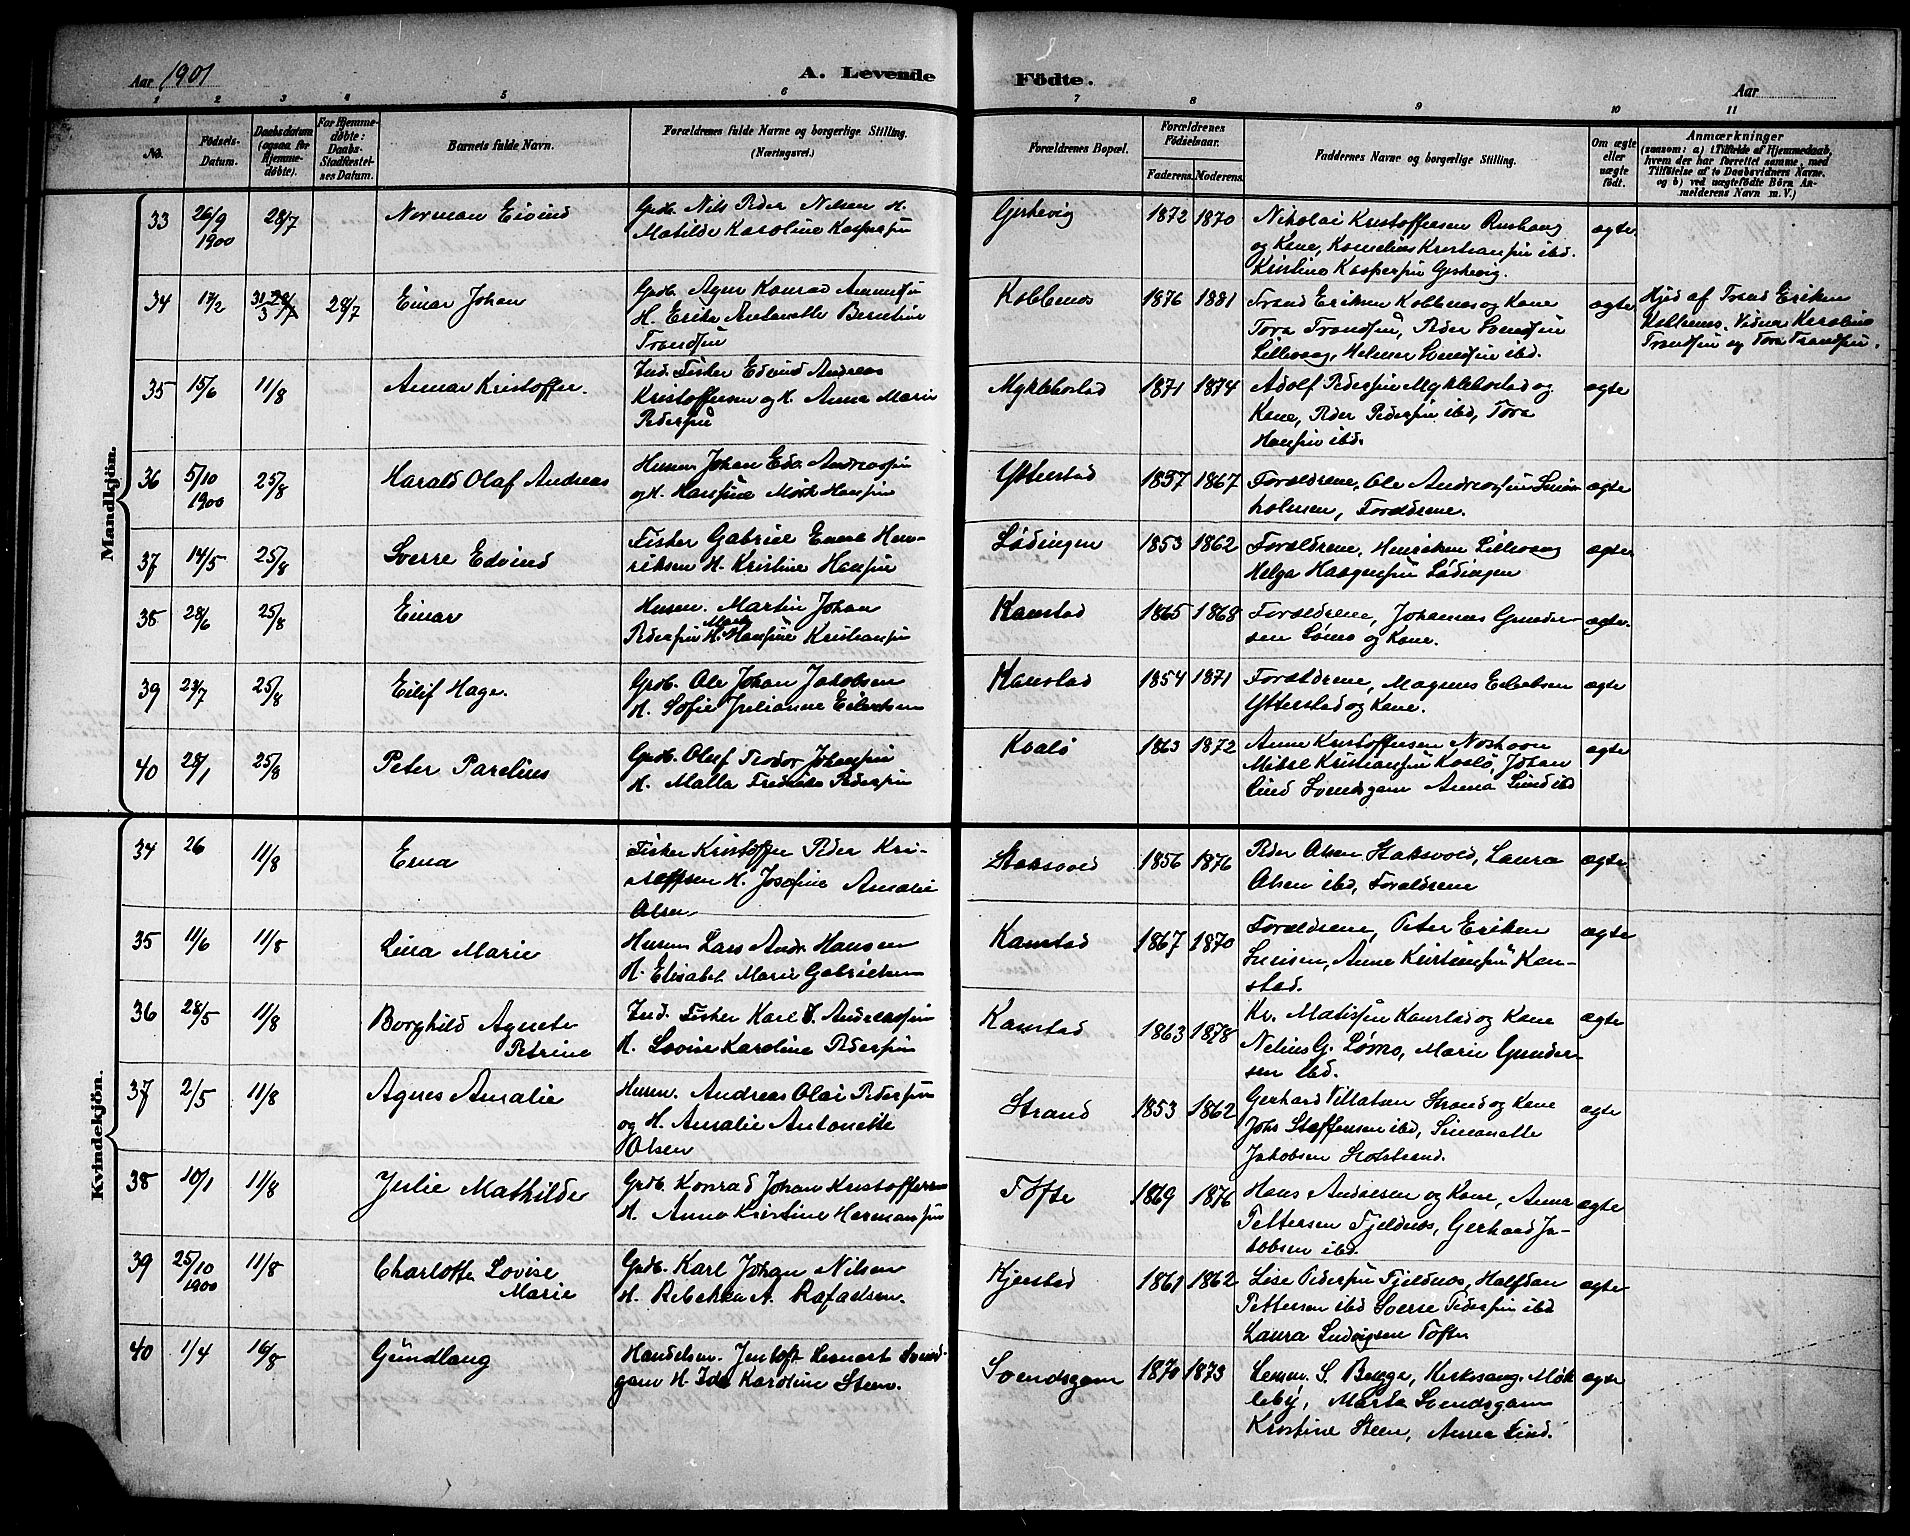 Aar 1901
A. Levende
Födte.
Aar
1 2 3 4 5 6 7 8 9 10 11
No.
Födsels-Datum.
Daabsdatum (ogsaa for Hjemmedøbte).
For Hjemmedøbte: Daabs-Stadfæstelses Datum.
Barnets fulde Navn.
Forældrenes fulde Navne og borgerlige Stilling.
(Næringsvei.)
Forældrenes Bopæl.
Forældrenes Födselsaar.
Faderens. Moderens.
Faddernes Navne og borgerlige Stilling.
Om ægte eller uægte födt.
Anmærkninger
(saasom: a) i Tilfælde af Hjemmedaab,
hvem der har forrettet samme, med
Tilföielse af to Daabsvidners Navne.
og b) ved uægtefödte Börn An-
melderens Navn m. V.)
Mandkjön.
33 26/9 1900 28/7 Norman Eivind
Grdb. Nils Peder Nilsen H.
Matilde Karoline Kaspersen
Gjerkevig 1872 1870
Nikolai Kristoffersen
og Kone, Kornelius Kristiansen ibd.
Kristine Kaspersen Gjerkevig.
ægte
34 17/2 31/3 28/7 Einar Johan
Grdb. Konrad
H. Erika Antonette Berntine
Trondsen
Kobbenes 1876 1881
Trond Eriksen Kobbenes og Kone
Tora Trondsen, Peder Svendsen
Lillevaag, Helmer Svendsen ibd.
ægte
Hjed af Trond Eriksen
Kobbenes. Vidner Karoline
Trondsen og Tora Trondsen.
35 15/6 11/8 Annar Kristoffer.
Ind. Fisker Edvind Andreas
Kristoffersen og H. Anna Marie
Pedersen
Myklebostad 1871 1874
Adolf Pedersen Myklebostad og
Kone, Peder Pedersen ibd, Tora
Hansen ibd.
ægte
36 5/10 1900 25/8 Harald Olaf Andreas
Husm Johan Edv. Andreassen
og H. Hansine Mörk Hansen
Ytterstad 1857 1867
Forældrene, Ole Andreassen
holmen, Forældrene.
ægte
37 14/5 25/8 Sverre Edvind
Fisker Gabriel Hen-
riksen H. Kristine Hansen
Lödingen 1853 1862
Forældrene, Lillevaag
Helga Haagensen Lödingen
ægte
38 28/6 25/8 Einar
Husm. Martin Johan
Pedersen H. Hansine Kristiansen
Kanstad 1865 1868
Forældrene, Johannes Gunder-
sen Lömo og Kone.
ægte.
39 23/7 25/8 Eilif Hage.
Grdb. Ole Johan Jakobsen
H. Sofie Julianne Eilertsen
Kanstad 1854 1871
Forældrene, Magnus Eilertsen
Ytterstad og Kone.
ægte
40 28/1 25/8 Peter Parelius
Grdb. Oluf Teodor Johansen
H. Malla Fredrikke Pedersen
Kvalö 1863 1872
Anne Kristoffersen
Mikal Kristiansen, Johan
Lind Svendsgam Anna Lind ibd
ægte
Kvindekjön.
34 26 11/8 Erna
Fisker Kristoffer Peder Kri-
stoffsen H. Josefine Amalie
Olsen
Stoksvold 1856 1876
Peder Olsen Staksvold, Laura
Olsen ibd, Forældrene
ægte
35 11/6 11/8 Lina Marie
Husm Lars Andr. Hansen
H. Elisabet Marie Gabrielsen
Kanstad 1867 1870
Forældrene, Peter Eriksen
Anne Kristiansen Kan-
stad.
ægte
36 28/5 11/8 Borghild Agnete
Petrine
Ind. Fisker Karl J. Andreassen
H. Lovise Karoline Pedersen
Kanstad 1863 1878
Kr. Matissen Kanstad og Kone
Nelius G. Lömo, Marie Gunder-
sen ibd.
ægte
37 2/5 11/8 Agnes Amalie
Husm. Andreas Olai Pedersen
og H. Amalie Antonette
Olsen
Strand 1853 1862
Gerhard Villatsen Strand og Kone
Johs Steffensen ibd, Simonette
Jakobsen
ægte
38 10/1 11/8 Julie Mathilde
Grdb. Konrad Johan Kristoffersen
H. Anna Kristine Hermansen
Tofte 1869 1876
Hans Andresen og Kone, Anna
Pettersen Fjeldnes, Gerhard Ja-
kobsen ibd.
ægte
39 25/10 1900 11/8 Charlotte Lovise
Marie
Grdb. Karl Johan Nilsen
H. Rebekka A. Rafaelsen.
Kjerstad 1861 1862
Lise Pedersen Fjeldnes, Halfdan
Pettersen ibd Sverre Pedersen ibd
Laura Ludvigsen Tofte
ægte
40 1/4 16/8 Gundlaug
Handelsm. Jentoft Svends-
gam H. Ida Karoline Steen.
Svendsgam 1870 1873
Lensm. S. Bugge, Kirkesang. Mök-
leby, Marta Svendsgam
Kristine Steen, Anna Lind.
ægte